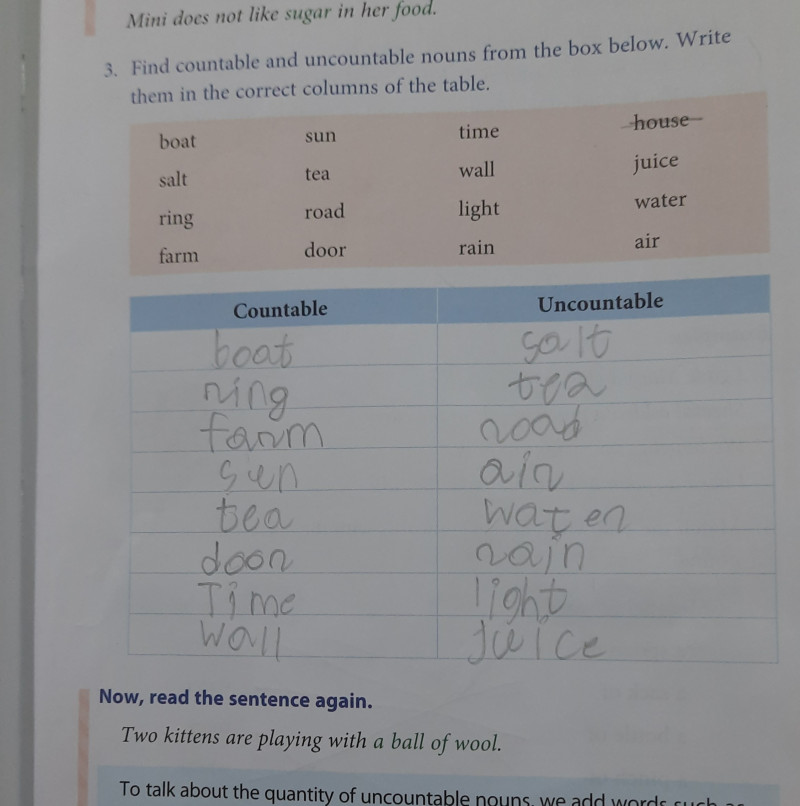 Mini does not like sugar in her food.
3. Find countable and uncountable nouns from the box below. Write
them in the correct columns of the table.
boat sun time house
salt tea wall juice
ring road light water
farm door rain air
Countable Uncountable
boat salt
ring tea
farm road
sun air
tea water
door rain
Time light
Wall Juice
Now, read the sentence again.
Two kittens are playing with a ball of wool.
To talk about the quantity of uncountable nouns, we add words such as